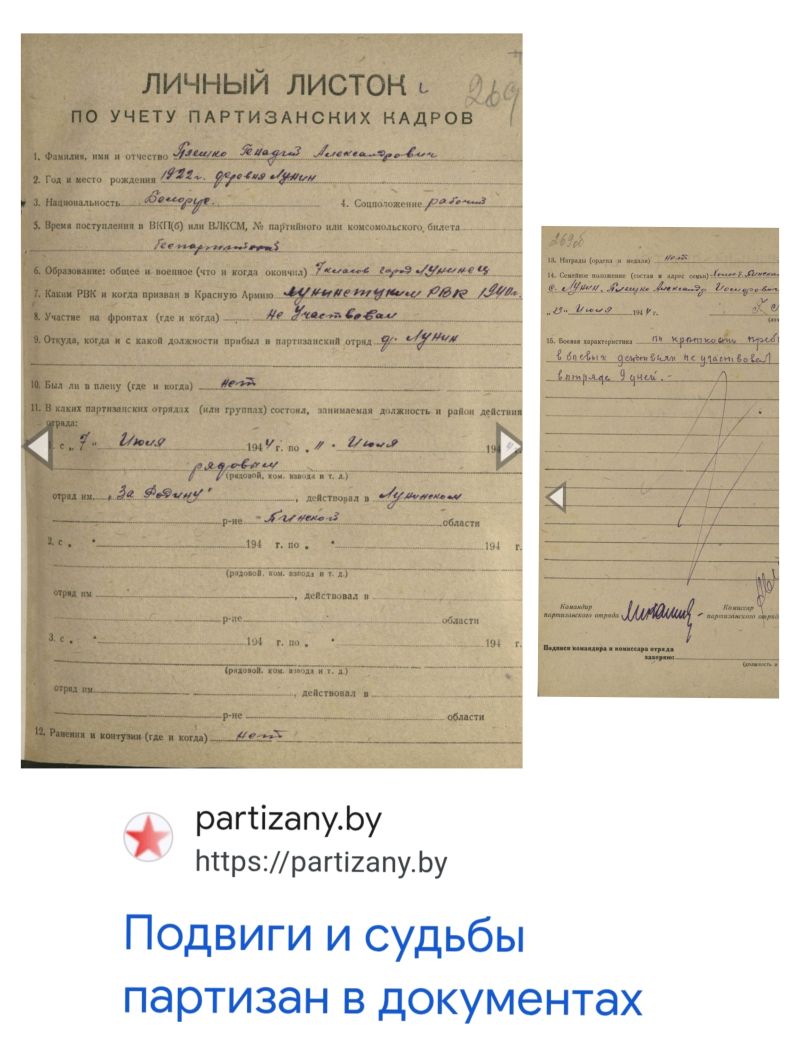 269
ЛИЧНЫЙ ЛИСТОК
ПО УЧЕТУ ПАРТИЗАНСКИХ КАДРОВ
1. Фамилия, имя и отчество Генадий Александрович
2. Год и место рождения 1922 г. деревня Лунин
3. Национальность Белорус. 4. Соцположение рабочий
5. Время поступления в ВКП(б) или ВЛКСМ, № партийного или комсомольского билета
беспартийный
6. Образование: общее и военное (что и когда окончил) 7 классов город Лунинец
7. Каким РВК и когда призван в Красную Армию Лунинецким РВК 1940г.
8. Участие на фронтах (где и когда) Не Участвовал
9. Откуда, когда и с какой должности прибыл в партизанский отряд д. Лунин
10. Был ли в плену (где и когда) нет
11. В каких партизанских отрядах (или группах) состоял, занимаемая должность и район действия
отряда:
с „7" Июля 1944 г. по „ " Июля 194
рядовым
(рядовой, ком. взвода и т. д.)
отряд им. „За Родину", действовал в Лунинском
р-не Пинской области
2. с „ " 194 г. по „ " 194 г.
(рядовой, ком. взвода и т. д.)
отряд им , действовал в
р-не области
3. с „ " 194 г. по „ " 194 г.
(рядовой, ком. взвода и т. д.)
отряд им. , действовал в
р-не области
12. Ранения и контузии (где и когда) нет
269об
13. Награды (ордена и медали) нет
14. Семейное положение (состав и адрес семьи)
с. Лунин, Александр
Июля 194 г.
15. Боевая характеристика по кратковом
в боевых действиях не участвовал
в отряде 9 дней. -
Командир Комиссар
партизанского отряда партизанского отряд
Подписи командира и комиссара отряда
заверяю:
(должность и
partizany.by
https://partizany.by
Подвиги и судьбы
партизан в документах